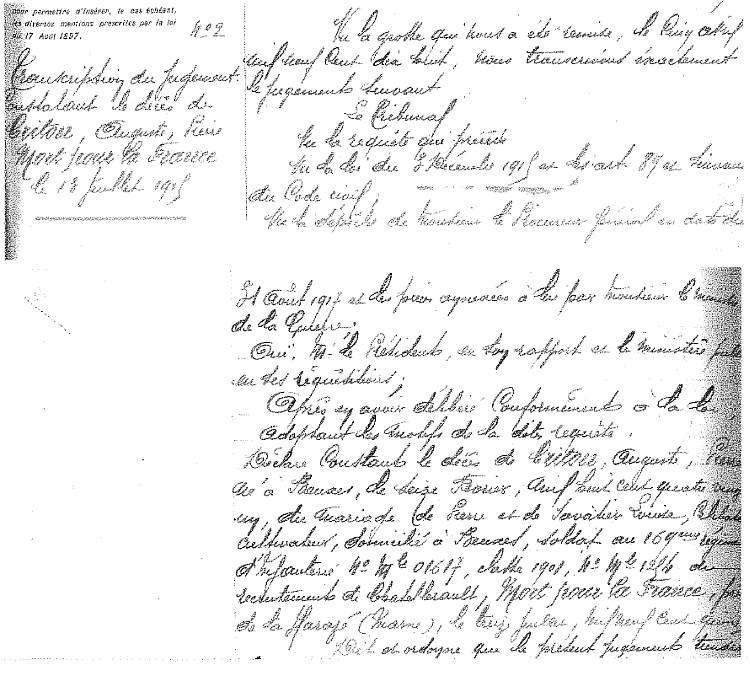 Pour permettre d'insérer, le cas échéant,
les diverses mentions prescrites par la loi
du 17 Août 1897.
N° 2
Transcription du Jugement
Constatant le décès de
Auguste, Pierre
Mort pour la France
le 13 Juillet 1915
Vu la grosse qui nous a été remise, le Cinq
mil neuf Cent dix huit, Nous transcrivons exactement
le jugement suivant
Le Tribunal
Vu la requête qui précède
Vu la loi du 3 Décembre 1915 et les art. 89 et suivants
du Code civil,
Vu la dépêche de Monsieur le Procureur Général en date du
31 Août 1917 et les pièces annexées à lui par Monsieur le Ministre
de la Guerre;
Ouï, Mr le Président, en son rapport et le ministère public
en ses réquisitions;
Après en avoir délibéré Conformément à la loi
adoptant les motifs de la dite requête.
Déclare Constant le décès de Auguste, Pierre
né à le seize Février, mil huit cent quatre vingt
un, du mariage de Pierre et de Savatier Louise, Célibataire
Cultivateur, domicilié à soldat au 169ème régiment
d'Infanterie N° Mle 01617, Classe 1901, N° Mle 1254 du
recrutement de Chatellerault, Mort pour la France,
de la Harazé (Marne), le treize juillet, mil neuf cent quinze
Dit et ordonne que le présent jugement tiendra